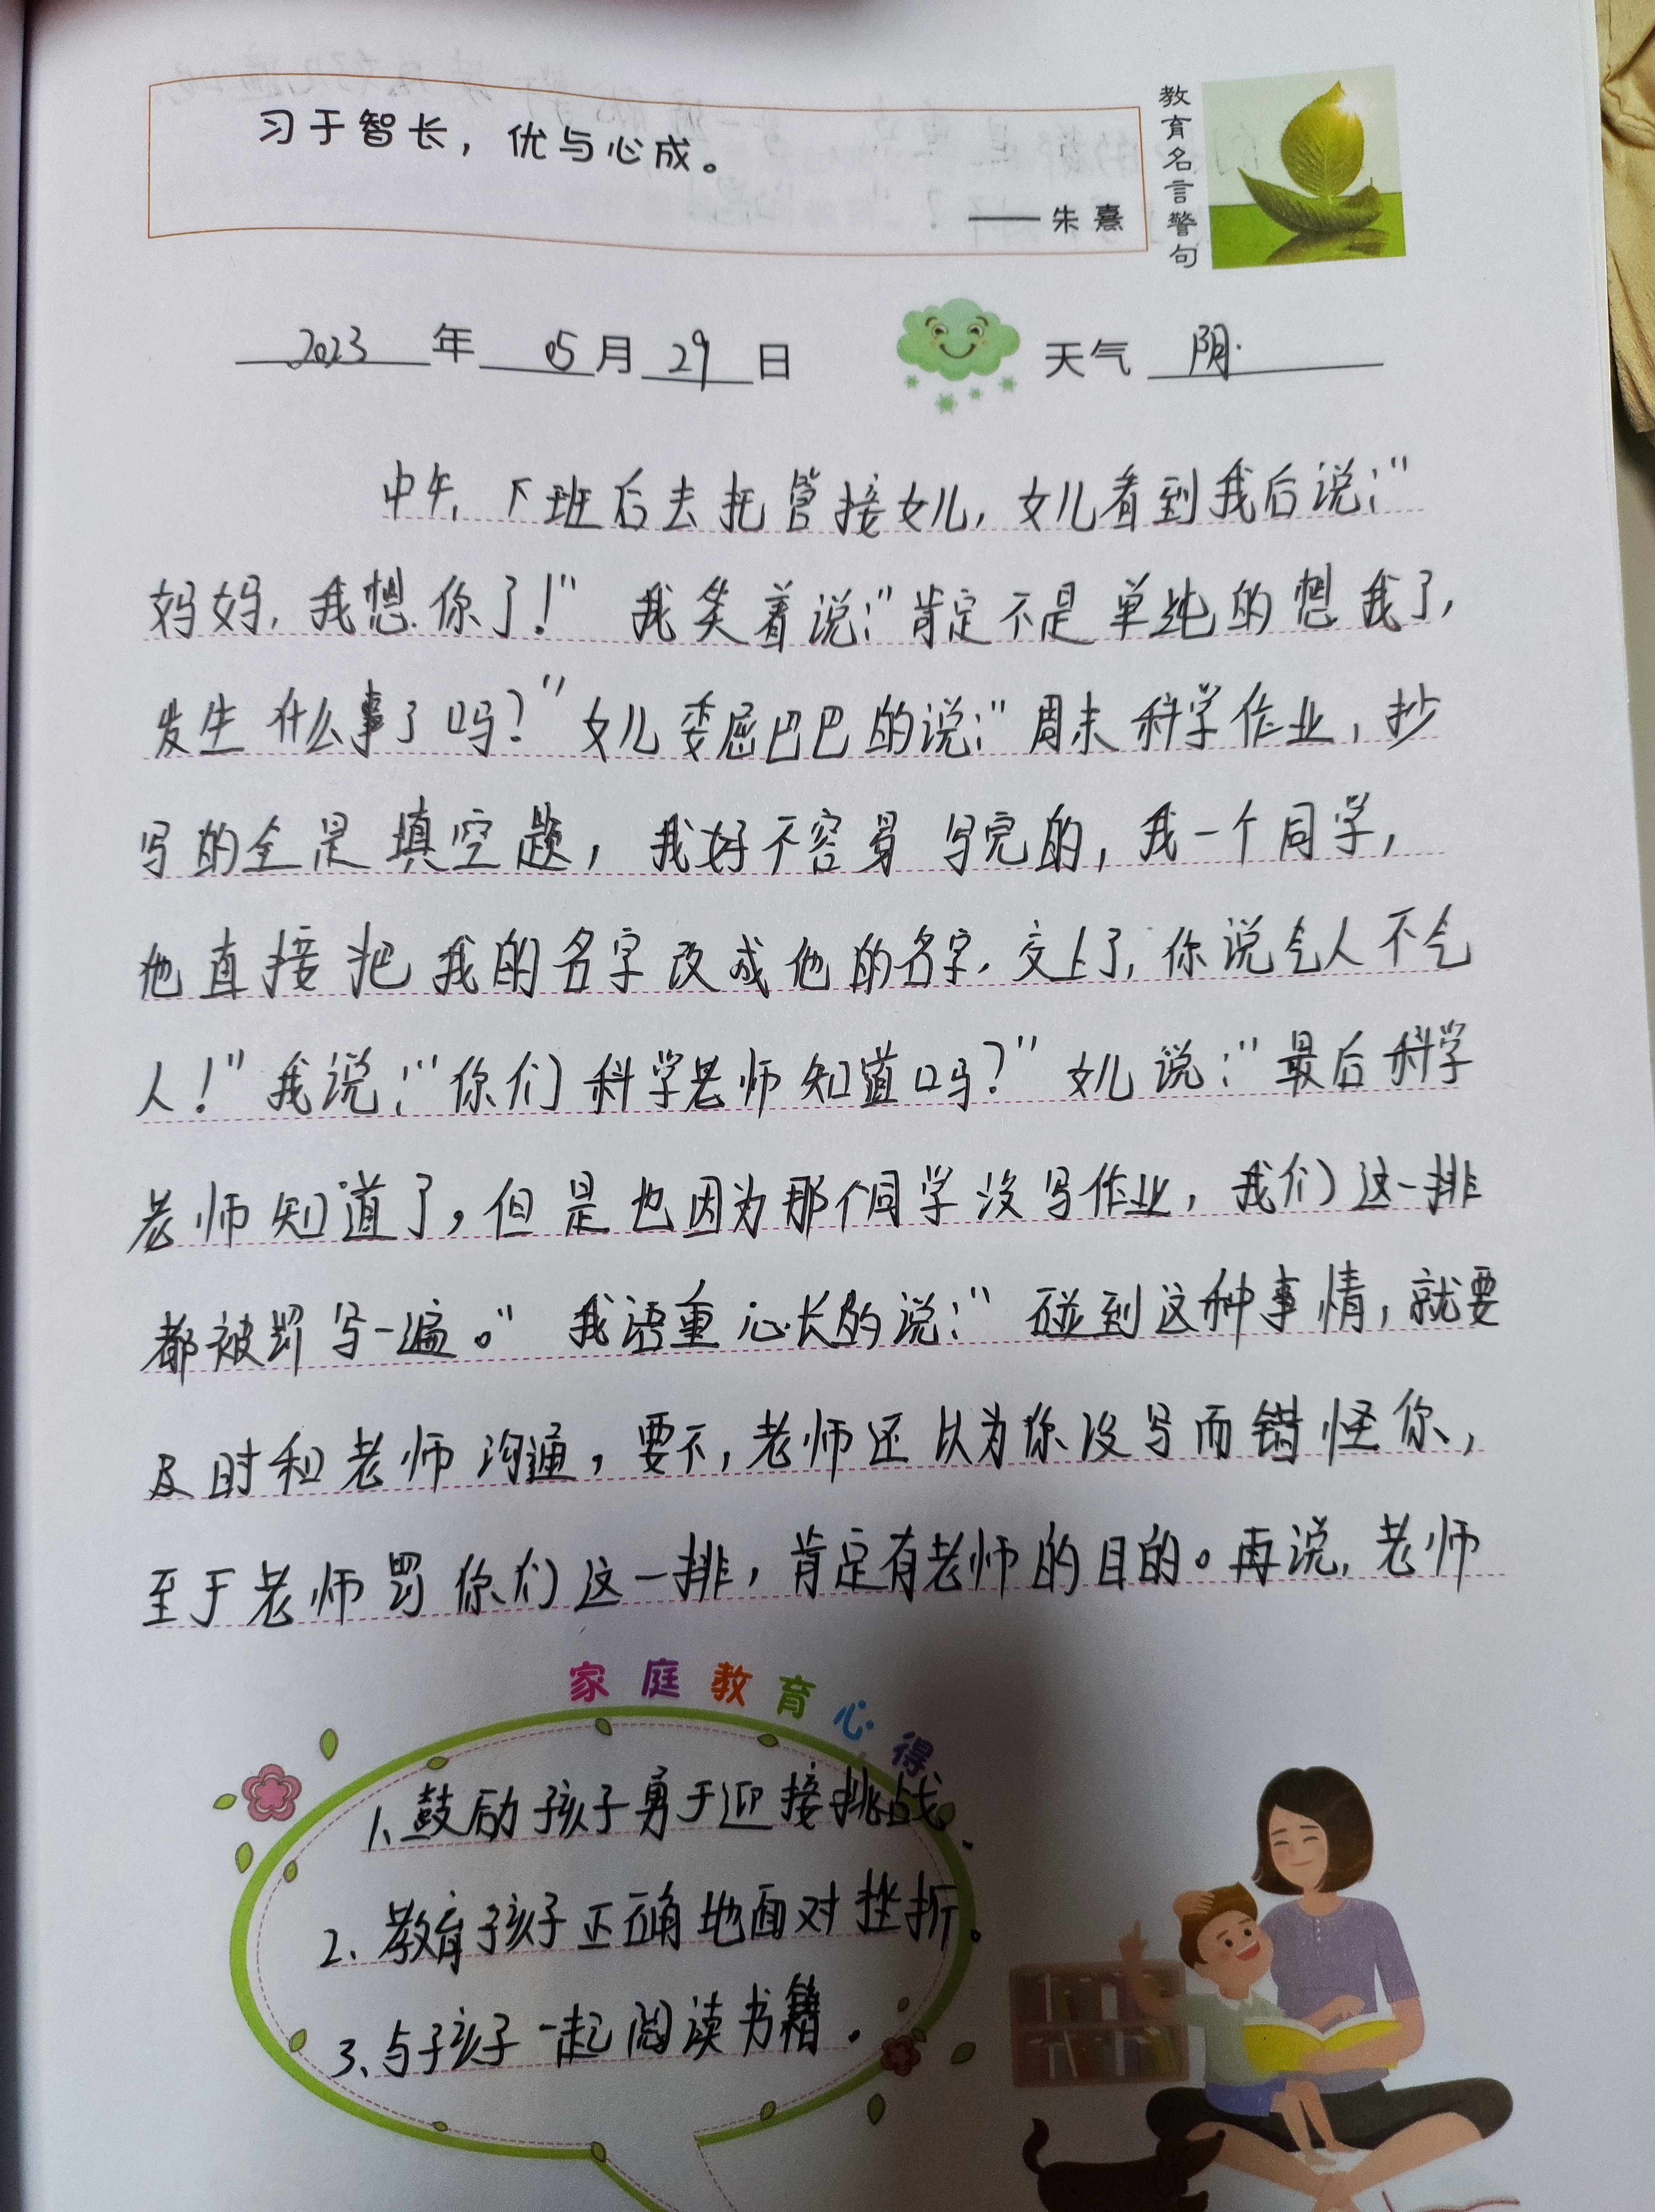 习于智长，优与心成。
——朱熹
教育名言警句
2023年05月29日 天气 阴
中午，下班后去托管接女儿，女儿看到我后说：“
妈妈，我想你了！”我笑着说：“肯定不是单纯的想我了，
发生什么事了吗？”女儿委屈巴巴的说：“周末科学作业，抄
写的全是填空题，我好不容易写完的，我一个同学，
他直接把我的名字改成他的名字，交上了，你说气人不气
人！”我说：“你们科学老师知道吗？”女儿说：“最后科学
老师知道了，但是也因为那个同学没写作业，我们这一排
都被罚写一遍。”我语重心长的说：“碰到这种事情，就要
及时和老师沟通，要不，老师还以为你没写而错怪你，
至于老师罚你们这一排，肯定有老师的目的。再说，老师
家庭教育心得
1、鼓励孩子勇于迎接挑战、
2、教育孩子正确地面对挫折。
3、与孩子一起阅读书籍。